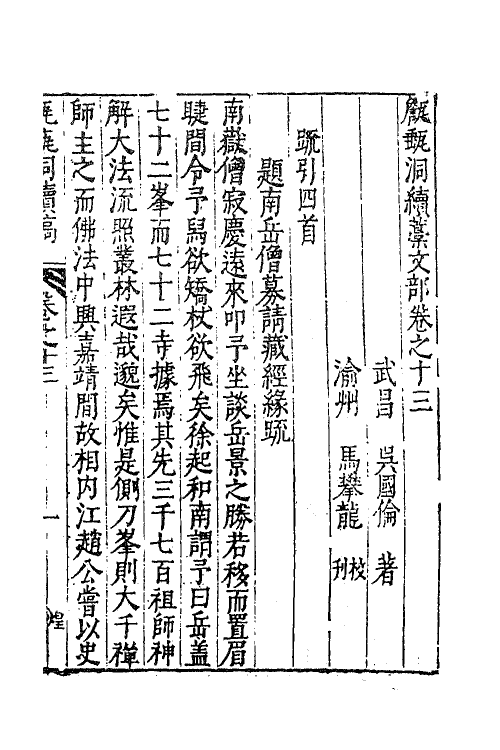 甔甀洞續藁文部卷之十三
武昌　吳國倫　著
渝州　馬攀龍　校刊
䟽引四首
題南岳僧募請藏經緣䟽
南嶽僧寂慶遠來叩予坐談岳景之勝若移而置眉
睫間令予舄欲矯杖欲飛矣徐起和南謂予曰岳蓋
七十二峯而七十二寺據焉其先三千七百祖師神
解大法流照叢林遐哉邈矣惟是側刀峯則大千禪
師主之而佛法中興嘉靖間故相內江趙公嘗以史
甔甀洞續稿
卷之十三
一